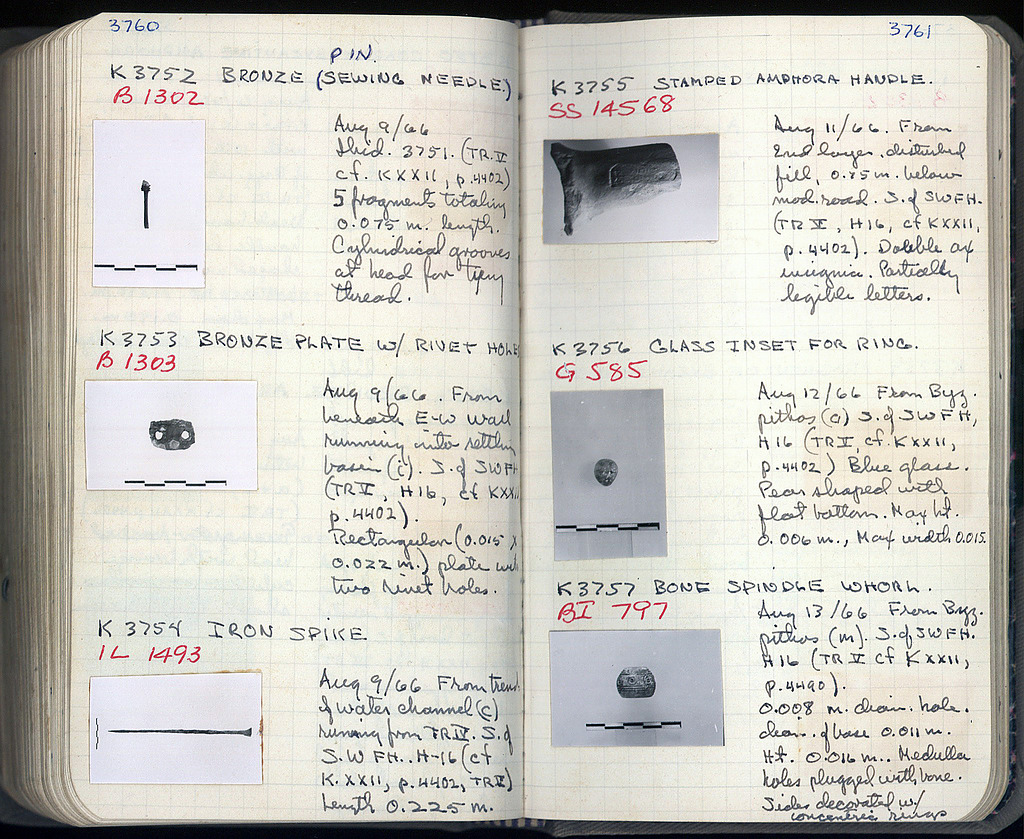 3760
PIN.
K 3752 BRONZE (SEWING NEEDLE.)
B 1302
Aug 9/66
Ibid. 3751. (TR. V
cf. KXXII, p.4402)
5 fragments totaling
0.075 m. length.
Cylindrical grooves
at head for tying
thread.
K 3753 BRONZE PLATE W/ RIVET HOLES
B 1303
Aug 9/66. From
beneath E-W wall
running into settling
basin (c). S. of SWFH
(TR V, H16, cf KXXII
p.4402).
Rectangular (0.015 x
0.022 m.) plate with
two rivet holes.
K 3754 IRON SPIKE
IL 1493
Aug 9/66 From trench
of water channel (c)
running from TR IV. S. of
S.W FH.. H-16 (cf
K.XXII, p.4402, TR V)
Length 0.225 m.
3761
K 3755 STAMPED AMPHORA HANDLE.
SS 14568
Aug 11/66. From
2nd layer, disturbed
fill, 0.75 m. below
mod. road. S. of SWFH.
(TR V, H16, cf KXXII,
p.4402). Double ax
insignia. Partially
legible letters.
K 3756 GLASS INSET FOR RING.
G 585
Aug 12/66 From Byz.
pithos (a) S. of SWFH,
H16 (TR V, cf. KXXII,
p.4402) Blue glass.
Pear shaped with
flat bottom. Max ht.
0.006 m., Max width 0.015.
K 3757 BONE SPINDLE WHORL.
BI 797
Aug 13/66 From Byz.
pithos (m). S. of SWFH.
H16 (TR V cf KXXII,
p.4490).
0.008 m. diam. hole.
diam. of base 0.011 m.
Ht. 0.016 m.. Medulla
holes plugged with bone.
Sides decorated w/
concentric rings